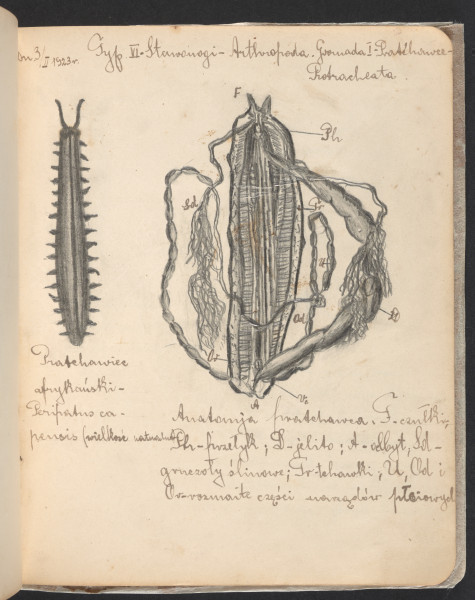 dn. 3/I 1923 r.
Typ VI - Stawonogi - Arthropoda. Gromada I - Pratchawce -
Protracheata.
F
Ph
Sd
Tr
U
Od
D
Or
A
Pratchawiec
afrykański -
Peripatus ca-
pensis (wielkość naturalna)
Anatomja pratchawca. F - czułki,
Ph - przełyk; D - jelito; A - odbyt, Sd -
gruczoły ślinowe; Tr - tchawki; U, Od i
Or - rozmaite części narządów płciowych